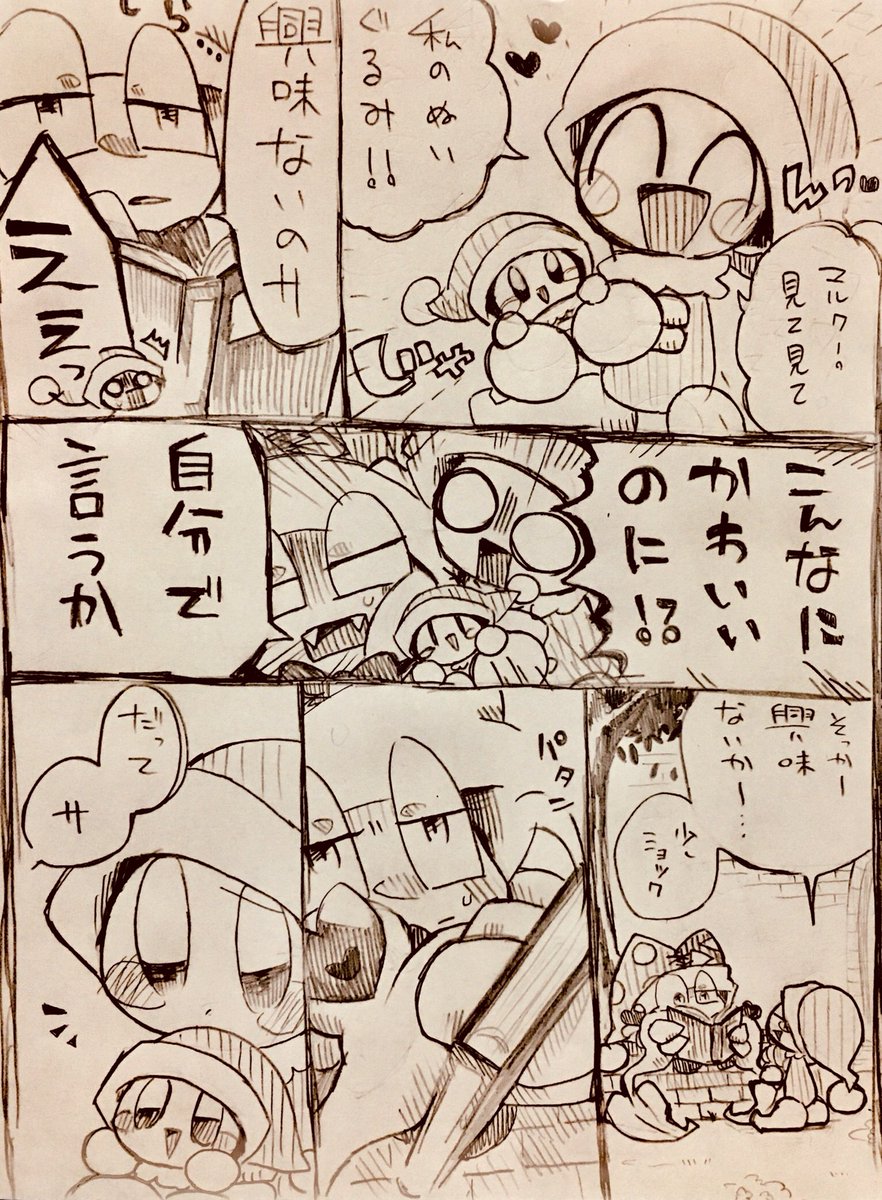 マルクー。
見て見て
じゃ
んッ…
私のぬい
ぐるみ!!
興味ないのサ
ええっ
こんなに
かわいい
のに!?
自分で
言うか
そっかー
興味
ないかー…
少し
ショック
パタン
だって
サ